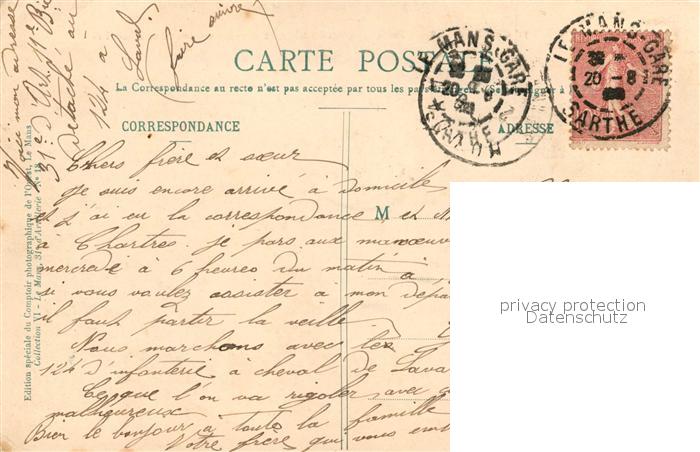 Voici mon adresse
31e d'Art. 11e Bie
détaché au
124 à
Laval
faire suivre
CARTE POSTALE
La Correspondance au recto n'est pas acceptée par tous les pays
CORRESPONDANCE
ADRESSE
LE MANS-GARE
20 -8
SARTHE
LE MANS-GARE
20 -8
SARTHE
M
Chers frère et sœur
Je suis encore arrivé à domicile
et j'ai eu la correspondance
à Chartres. je pars aux manœuv
mercredi à 6 heures du matin
si vous voulez assister à mon dépa
il faut partir la veille
Nous marchons avec les
124 d'infanterie à cheval de Lava
Ce que l'on va rigoler avec
malheureux
Bien le bonjour à toute la famille
Votre frère qui vous em
Edition spéciale du Comptoir photographique de l'Ouest, Le Mans
Collection VI - Le Mans, 31e d'Artillerie - No 18
privacy protection
Datenschutz